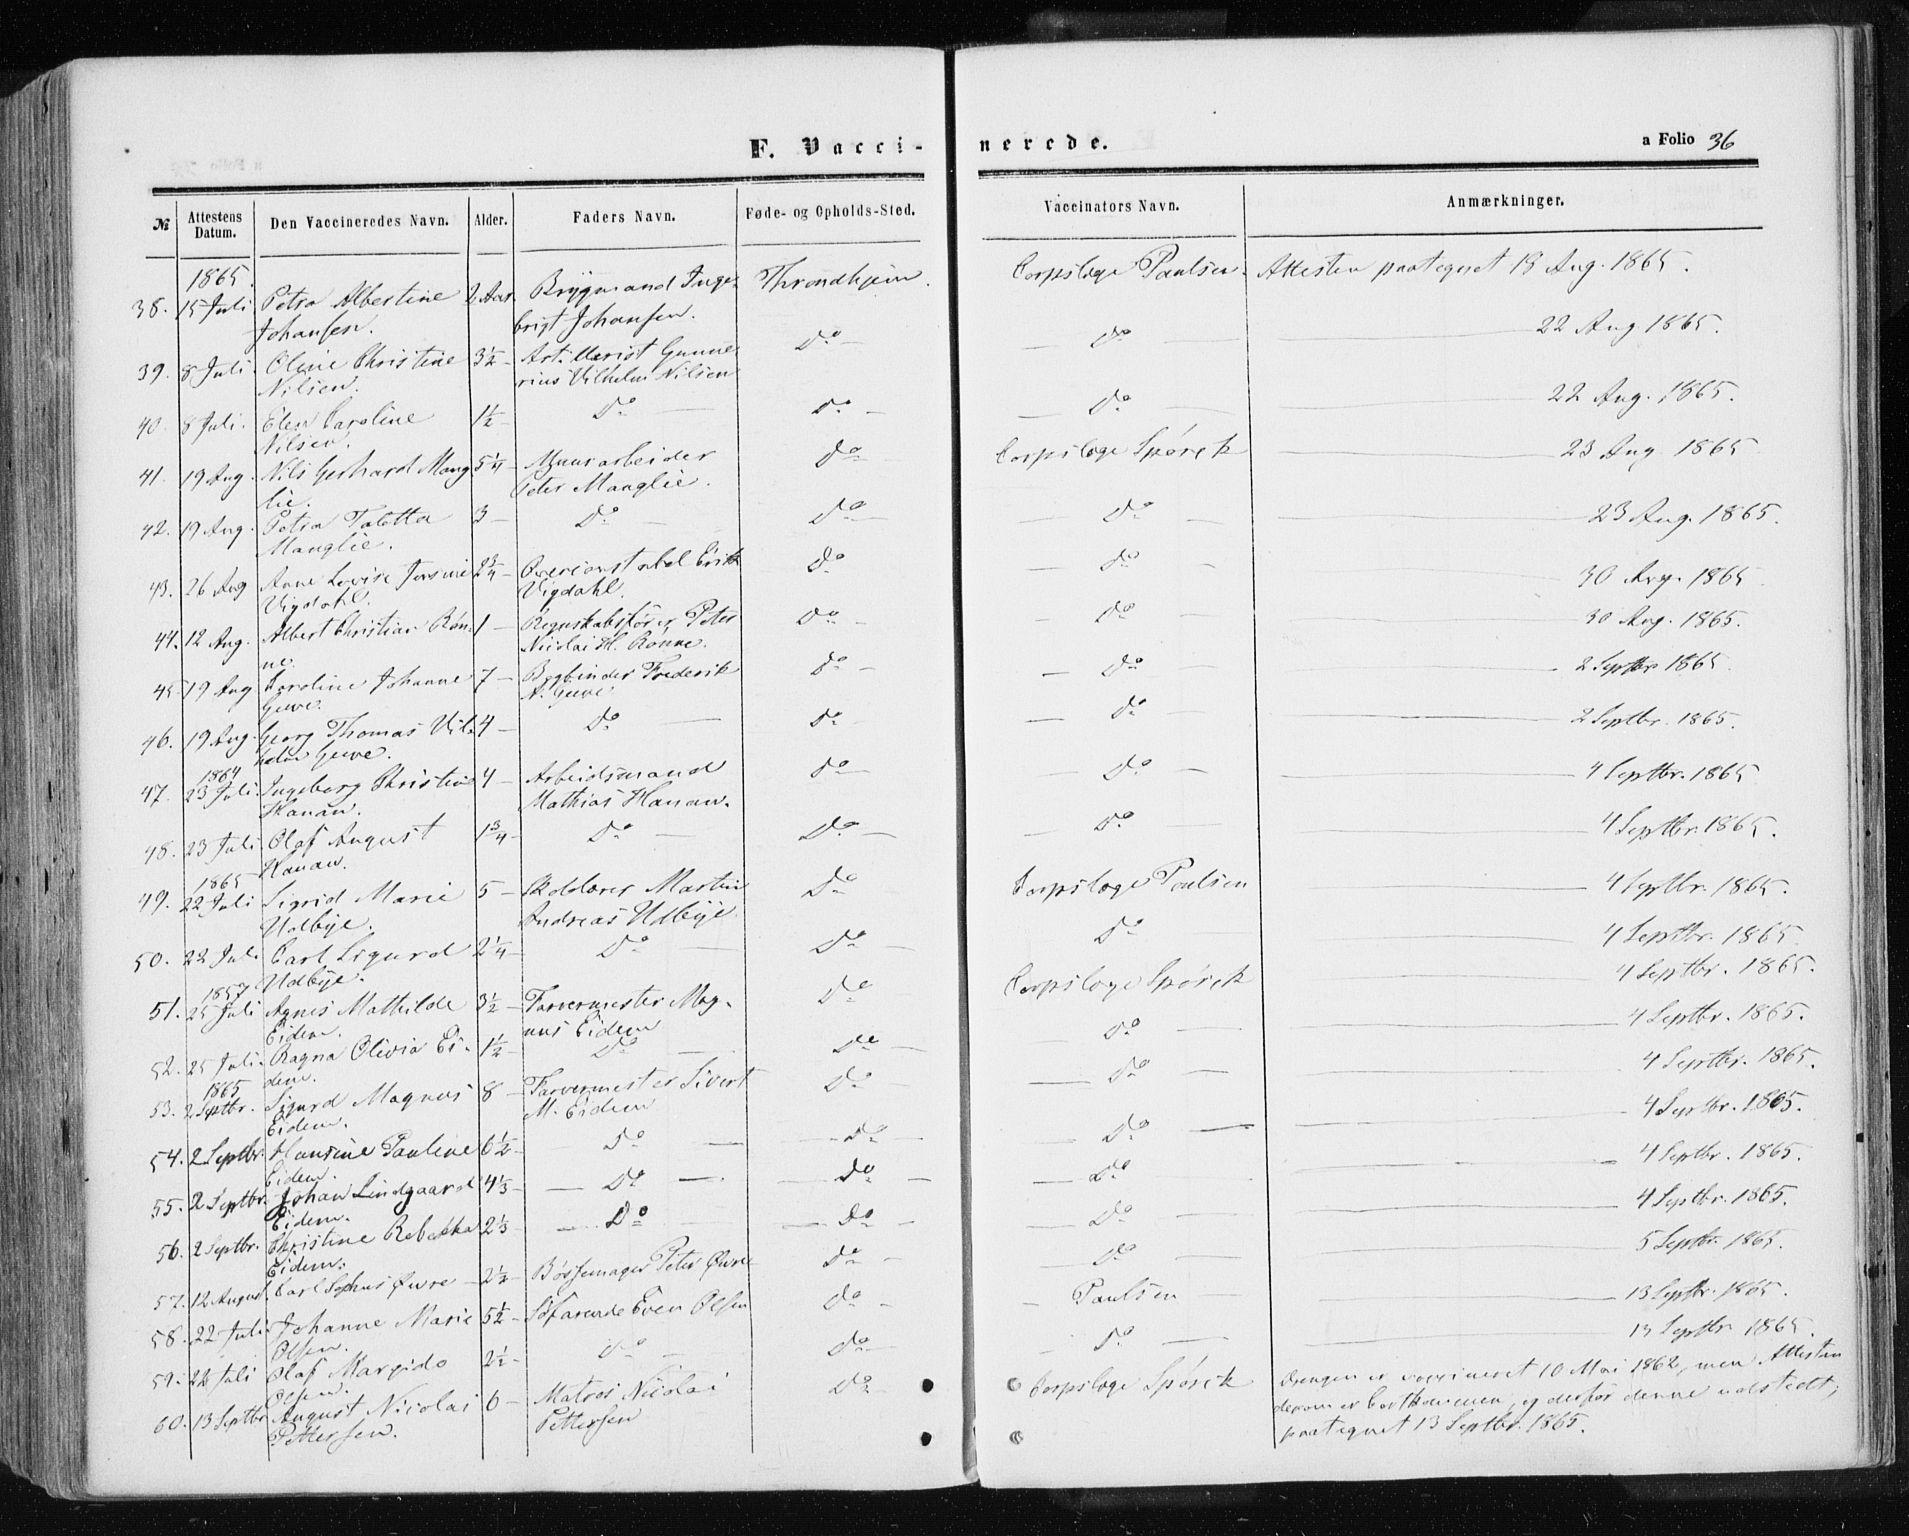 F. Vacci-nerede.
a Folio 36
№ Attestens Datum. Den Vaccineredes Navn. Alder. Faders Navn. Føde- og Opholds-Sted. Vaccinators Navn. Anmærkninger.
1865.
38. 15 Juli Petra Albertine 2 Aar. Brygmand Inge- Throndhjem. Corpslæge Paulsen. Attesten paategnet 19 Aug. 1865.
Johansen. brigt Johansen.
39. 8 Juli. Oline Christine 3½ – Artillerist Gunne- Do – Do 22 Aug 1865.
Nilsen. rius Vilhelm Nilsen
40. 8 Juli. Elen Caroline 1½ – Do Do – Do 22 Aug. 1865.
Nilsen.
41. 19 Aug. Nils Gerhard Mang 5¼ – Muurarbeider Do Corpslæge Spørck 23 Aug 1865
lie. Peter Manglie.
42. 19 Aug. Petra Taletta 3 – Do Do Do 23 Aug. 1865.
Manglie.
43. 26 Aug Anne Lovise 2¾ – Overconstabel Erik Do Do 30 Aug. 1865
Vigdahl. Vigdahl.
44. 12 Aug. Albert Christian Røn- 1 – Regnskabsfører Peter Do – Do 30 Aug. 1865.
ne. Nicolai H. Rønne.
45. 19 Aug Karoline Johanne 7 – Bogbinder Frederik Do – Do 2 Septbr 1865.
Geeve. A. Geeve
46. 19 Aug. Georg Thomas Vil- 4 – Do Do – Do 2 Septbr. 1865.
helm Geeve.
1864
47. 23 Juli. Ingeborg Christine 4 – Arbeidsmand Do Do 4 Septbr. 1865
Hanan. Mathias Hanan.
48. 23 Juli Olaf August 1¾ – Do Do – Do 4 Septbr. 1865.
Hanan.
1865
49. 22 Juli Sigrid Marie 5 – Skolelærer Martin Do Corpslæge Paulsen 4 Septbr. 1865.
Udbye. Andreas Udbye.
50. 22 Juli Carl Sigurd 2¼ – Do Do – Do 4 Septbr. 1865.
Udbye.
1857
51. 25 Juli Agnes Mathilde 3½ – Farvermester Mag- Do Corpslæge Spørck 4 Septbr. 1865.
Eidem. nus Eidem
52. 25 Juli. Ragna Olivia Ei- 1½ – Do Do – Do 4 Septbr. 1865.
dem.
1865
53. 2 Septbr. Sigurd Magnus 8 – Farvermester Sivert Do – Do 4 Septbr. 1865.
Eidem. M. Eidem
54. 2 Septbr. Hansine Pauline 6½ – Do Do Do 4 Septbr. 1865.
Eidem.
55. 2 Septbr. Johan Lindgaard 4⅓ – Do Do Do 4 Septbr. 1865.
Eidem.
56. 2 Septbr. Christine Rebekka 2⅓ – Do Do – Do 4 Septbr. 1865.
Eidem.
57. 12 August. Carl Sophus Øvre 2½ – Børsemager Peter Øvre Do Do 5 Septbr. 1865.
58. 22 Juli Johanne Marie 5½ – Søfarende Even Olsen Do – Paulsen 13 Septbr. 1865.
Olsen.
59. 22 Juli Olaf Margido 2½ – Do Do Do 13 Septbr. 1865.
Olsen.
60. 13 Septbr August Nicolai 6 – Matros Nicolai Do Corpslæge Spørck Drengen er vaccineret 10 Mai 1862, men Attesten
Pettersen. Pettersen derom er bortkommen, og derfor denne udstedt;
paategnet 13 Septbr. 1865.